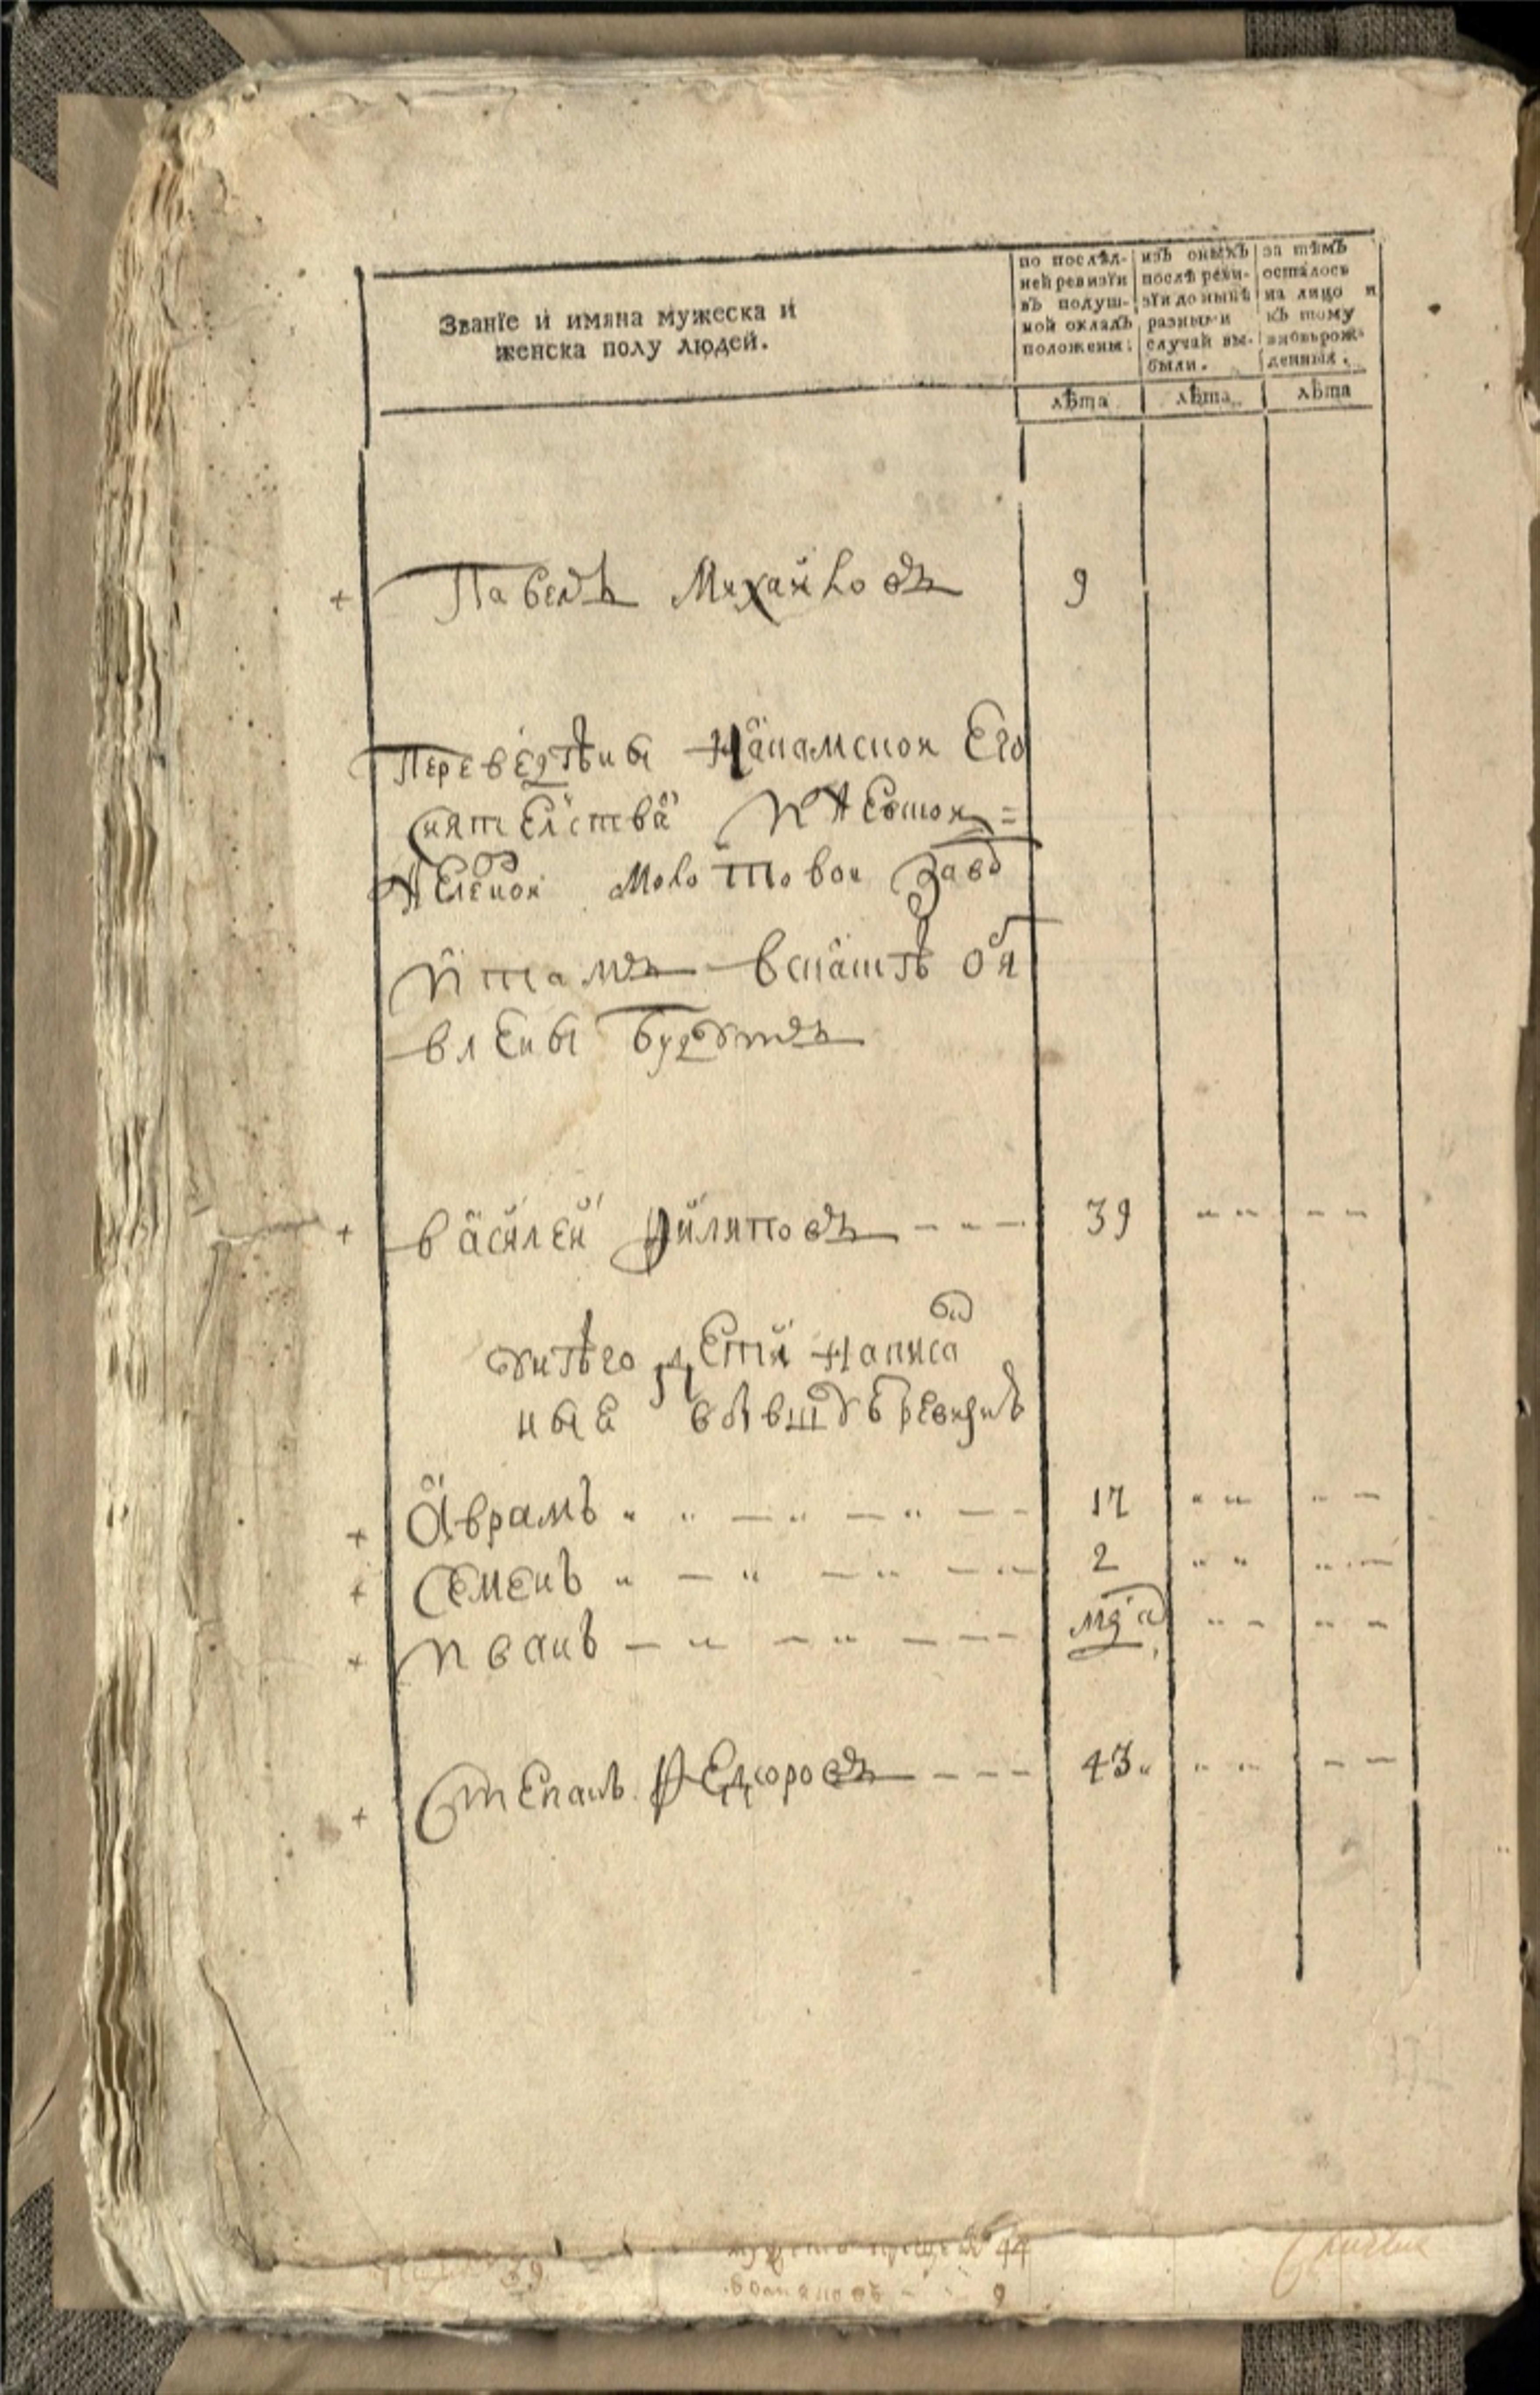 Званїе и имяна мужеска и
женска полу людей.
по послѣд-
ней ревизїи
въ подуш-
ной окладъ
положены.
изъ оныхъ
послѣ реви-
зїи до нынѣ
разными
случай вы-
были.
за тѣмъ
осталось
на лицо и
къ тому
вновьрож-
денныя.
лѣта лѣта лѣта
+ Павелъ Михайловъ 9
Переведены на Камской Его
Сиятелства
молотовои заво
и тамъ в скаскѣ обя
влены будутъ
+ василей Филиповъ 39
у него дети написа
ные в бывшую ревизию
+ Аврамъ 17
+ Семенъ 2
+ Иванъ
+ Степанъ Федоровъ 43
39
44
9